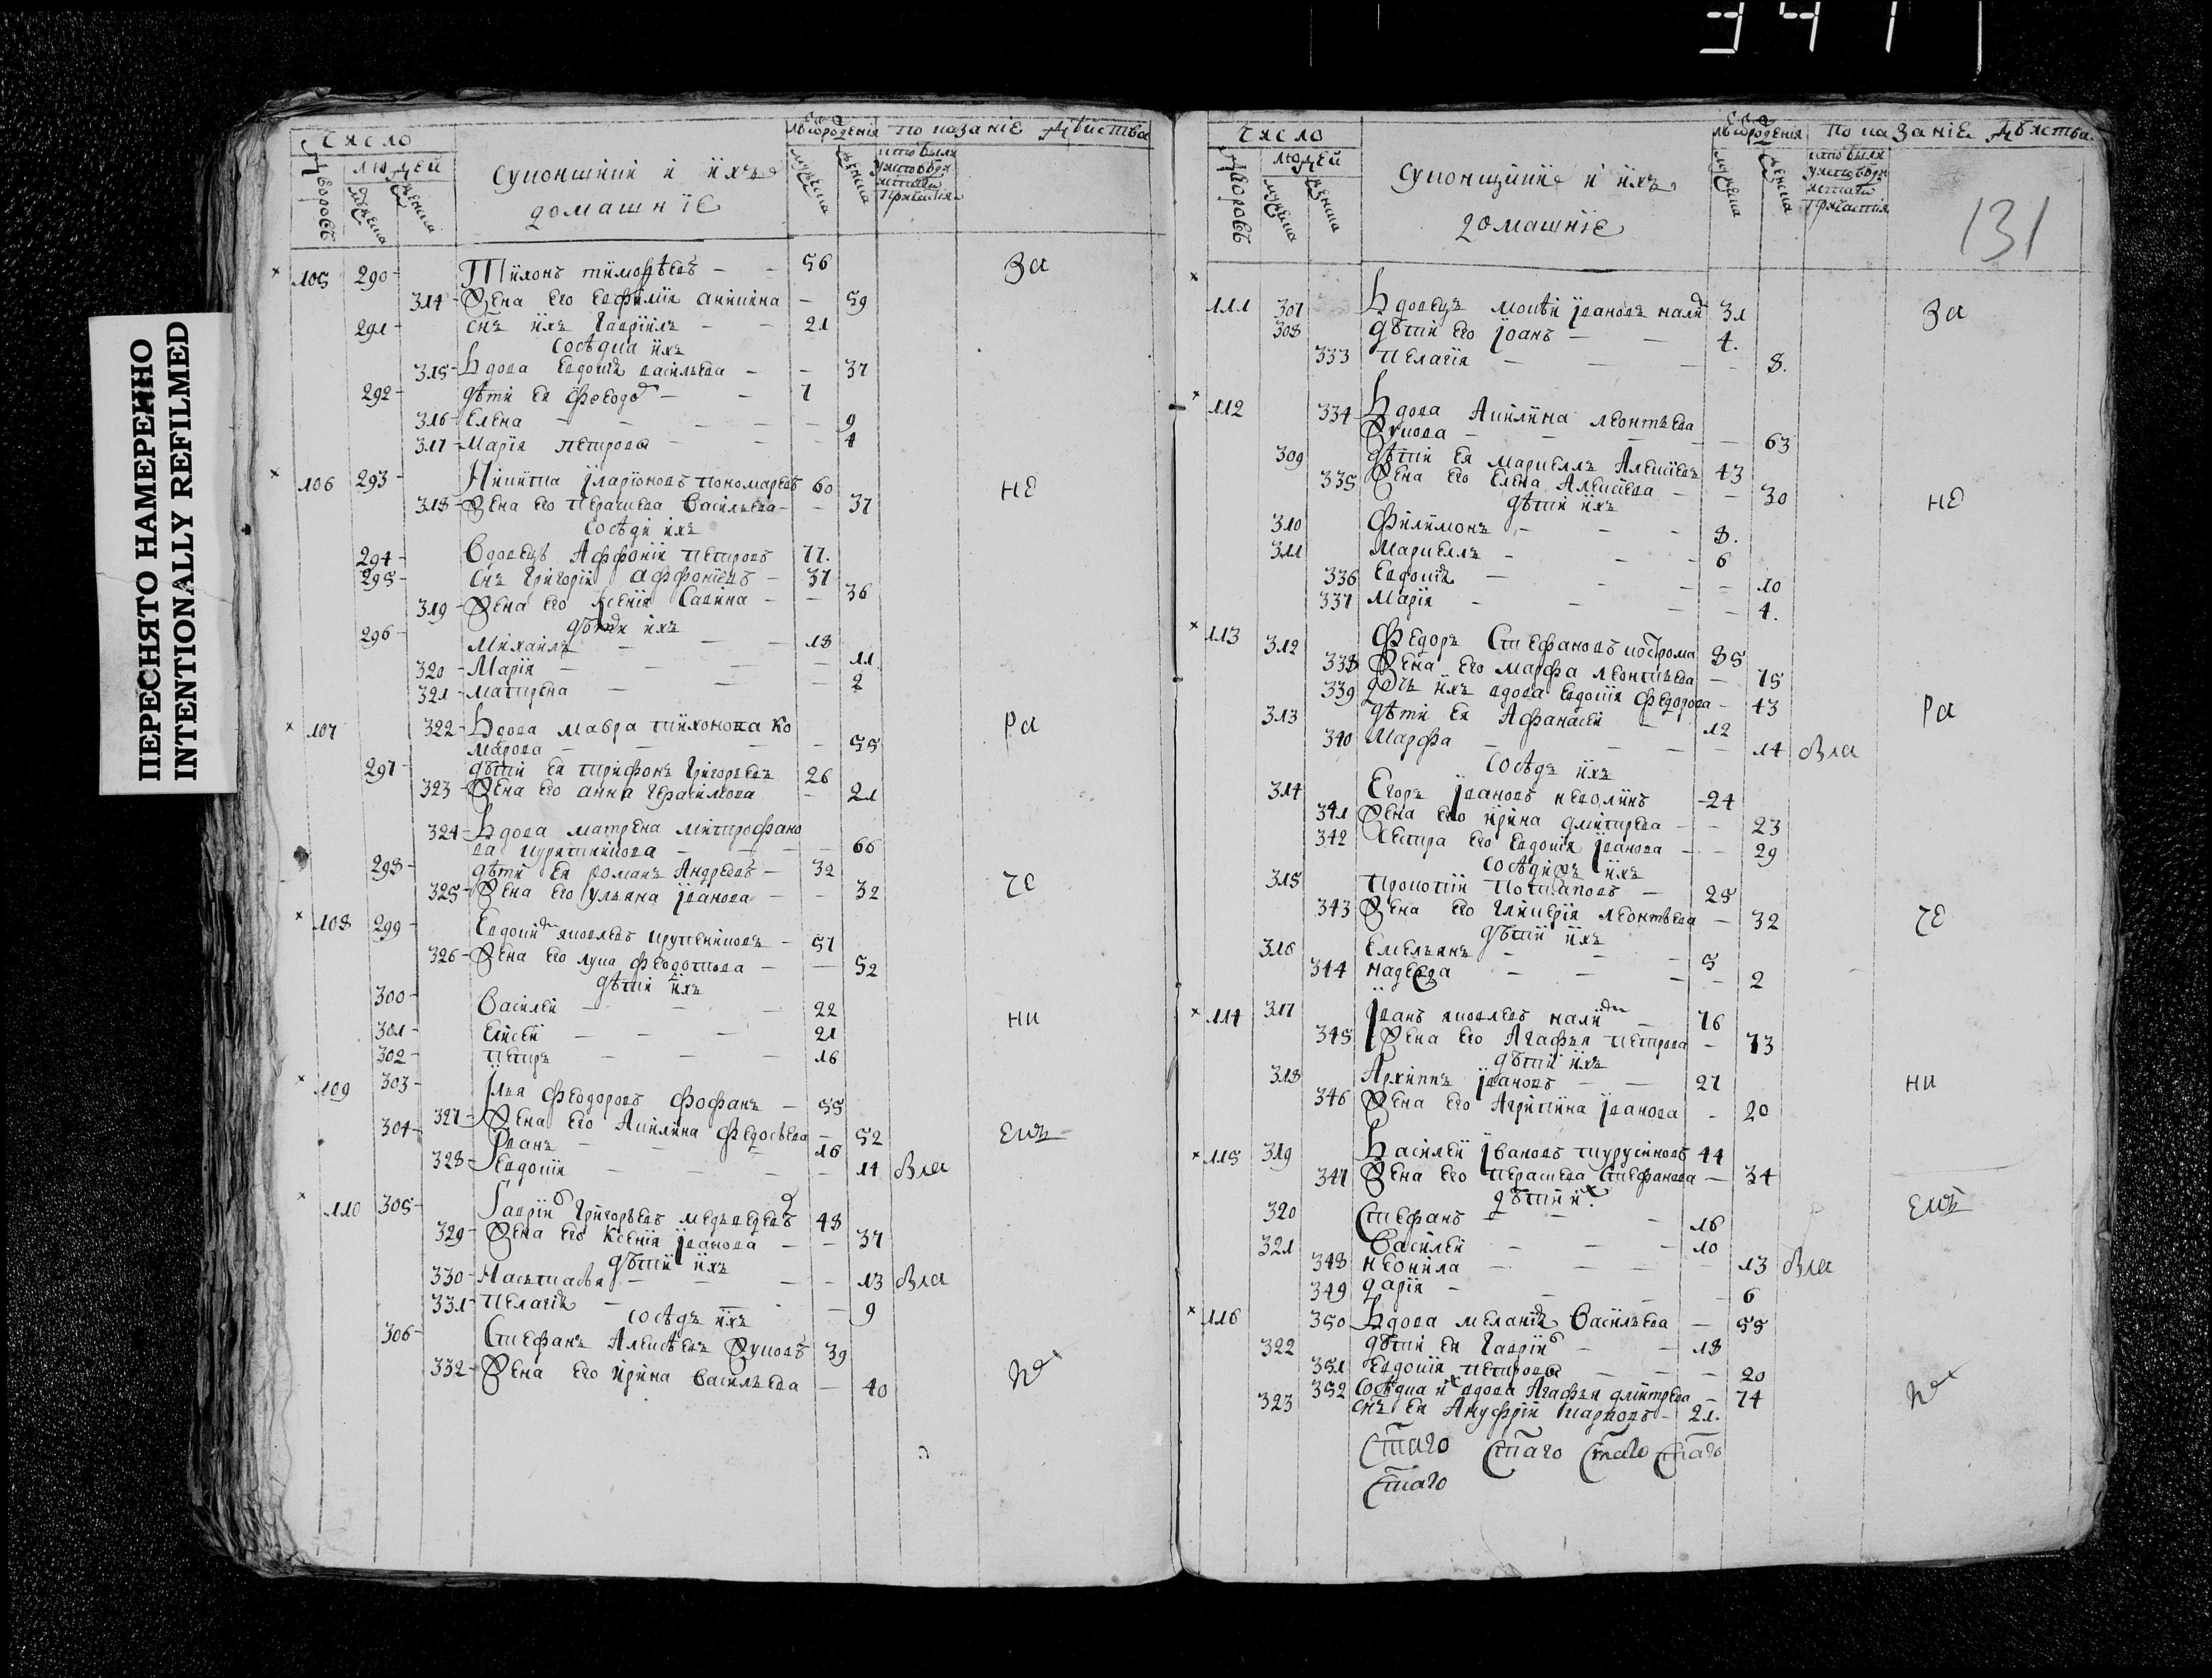 ПЕРЕСНЯТО НАМЕРЕННО
INTENTIONALLY REFILMED
Число
Дворовъ
людей
мужеска
женска
домашніе
мужеска
женска
105 290 Тихонъ тимофѣевъ 56 За
314 Жена его 59
291 снъ ихъ Гавріилъ 21
сосѣдка ихъ
315 Вдова Евдокія васильева 37
292 дѣти ея 7
316 Елена 9
317 Марія петровы 4
106 293 Никита Іларіоновъ пономаревъ 60 не
318 Жена его Васильева 37
сосѣди ихъ
294 Вдовецъ Аффоній петровъ 77.
295 снъ Григорій аффоніевъ 37
319 Жена его Ксенія Савина 36
дѣти ихъ
296 Михаилъ 18
320 Марія 11
321 матрена 2
107 322 Вдова мавра тихонова ко Ра
марова 55
297 дѣти ея трифонъ григорьевъ 26
323 Жена его анна герасимова 21
324 Вдова матрена митрофано
ва 66
298 дѣти ея романъ Андреевъ 32
325 Жена его ульяна іванова 32 че
108 299 яковлевъ 57
326 Жена его лука федотова 52
дѣти ихъ
300 Василей 22 ни
301 елисей 21
302 петръ 16
109 303 Ілья феодоровъ фофанъ 55
327 Жена его Акилина федосѣева 52
304 Іванъ 16
328 Евдокія 14 Вла
110 305 Гаврій Григорьевъ медведевъ 48
329 Жена его Ксенія іванова 37
дѣти ихъ
330 Настасья 13 Вла
331 пелагія 9
сосѣдъ ихъ
306 Стефанъ Алексѣевъ Жуковъ 39
332 Жена его ирина васильева 40
Число
Дворовъ
людей
мужеска
женска
домашніе
мужеска
женска
131
111 307 Вдовецъ мокѣй івановъ 31 За
308 дѣти его іоанъ 4.
333 пелагія 8.
112 334 Вдова Акилина леонтьева
Жукова 63
309 дѣти ея маркеллъ Алексіевъ 43
335 Жена его елена Алексіева 30 не
дѣти ихъ
310 Филимонъ 8.
311 маркеллъ 6
336 Евдокія 10
337 Марія 4.
113 312 Федоръ Стефановъ кострома 85
338 Жена его марфа леонтьева 75
339 дочь ихъ вдова евдокія федорова 43
313 дѣти ея Афанасей 12 Ра
340 Марфа 14 Вла
сосѣдъ ихъ
314 Егоръ івановъ неволинъ 24
341 Жена его ирина дмитрева 23
342 сестра его евдокія іванова 29
ихъ
315 Прокопій потаповъ 25
343 Жена его гликерія леонтьева 32 че
дѣти ихъ
316 Емельянъ 5
344 надежда 2
114 317 іванъ яковлевъ 76
345 Жена его Агафья петрова 73
дѣти ихъ
318 Архиппъ івановъ 27 ни
346 Жена его Агрипина іванова 20
115 319 Василей івановъ турусиновъ 44
347 Жена его Стефанова 34
дѣти их
320 Стефанъ 16
321 Василей 10
348 неонила 13 Вла
349 дарія 6
116 350 Вдова меланія Васильева 55
322 дѣти ея Гаврій 18
351 Евдокія петровы 20
352 сосѣдка их вдова Агафья дмитрева 74
323 снъ ея Ануфрій марковъ 21.
Стаго Стаго Стаго Стаго
Стаго